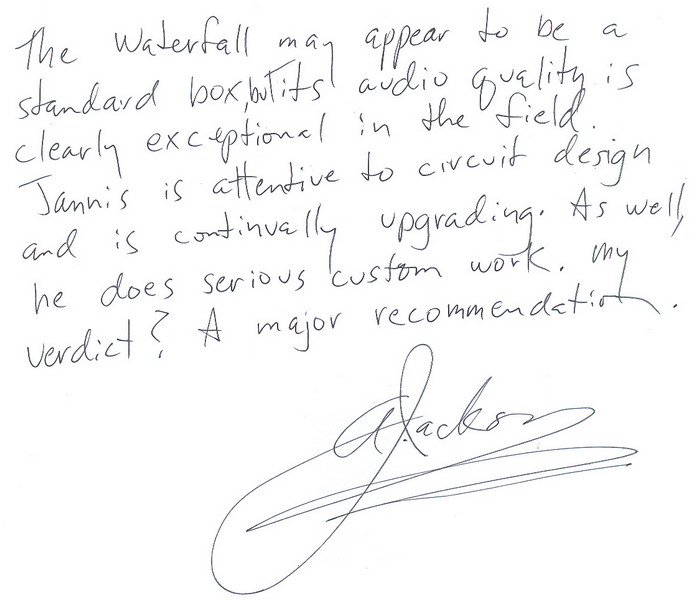 The Waterfall may appear to be a
standard box, but its audio quality is
clearly exceptional in the field.
Jannis is attentive to circuit design
and is continually upgrading. As well,
he does serious custom work. My
verdict? A major recommendation.
GJackson